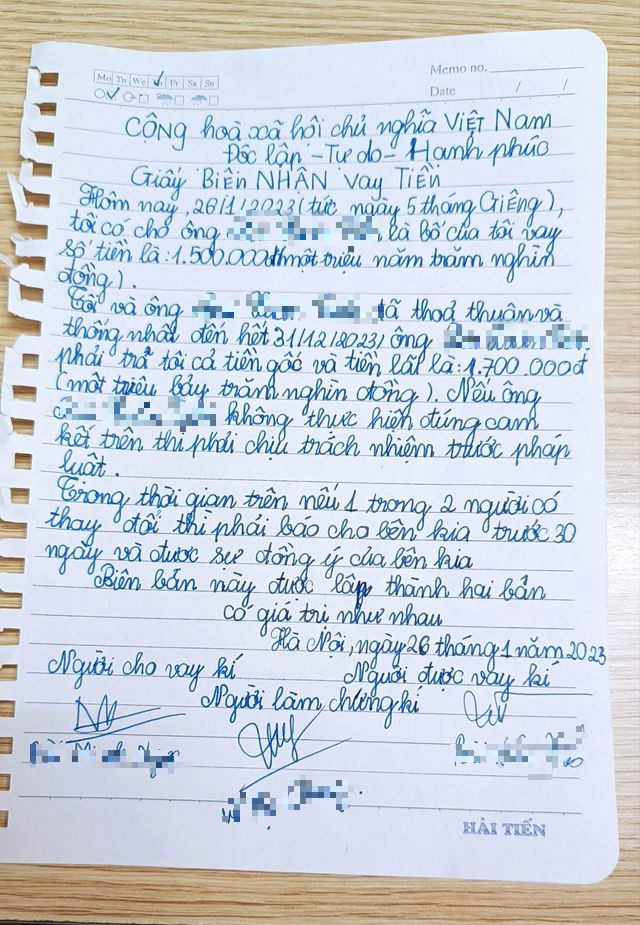 Mo Tu We Th Fr Sa Su
Memo no.
Date / /
CỘNG hoà xã hội chủ nghĩa VIỆT NAM
Độc lập - Tự do - Hạnh phúc
Giấy BIÊN NHẬN Vay TIỀN
Hôm nay, 26/1/2023 (tức ngày 5 tháng Giêng),
tôi có cho ông là bố của tôi vay
số tiền là: 1.500.000đ (một triệu năm trăm nghìn
đồng).
Tôi và ông đã thoả thuận và
thống nhất đến hết 31/12/2023, ông
phải trả tôi cả tiền gốc và tiền lãi là: 1.700.000đ
(một triệu bảy trăm nghìn đồng). Nếu ông
không thực hiện đúng cam
kết trên thì phải chịu trách nhiệm trước pháp
luật.
Trong thời gian trên nếu 1 trong 2 người có
thay đổi thì phải báo cho bên kia trước 30
ngày và được sự đồng ý của bên kia
Biên bản này được lập thành hai bản
có giá trị như nhau
Hà Nội, ngày 26 tháng 1 năm 2023
Người cho vay kí Người được vay kí
Người làm chứng kí
HẢI TIẾN